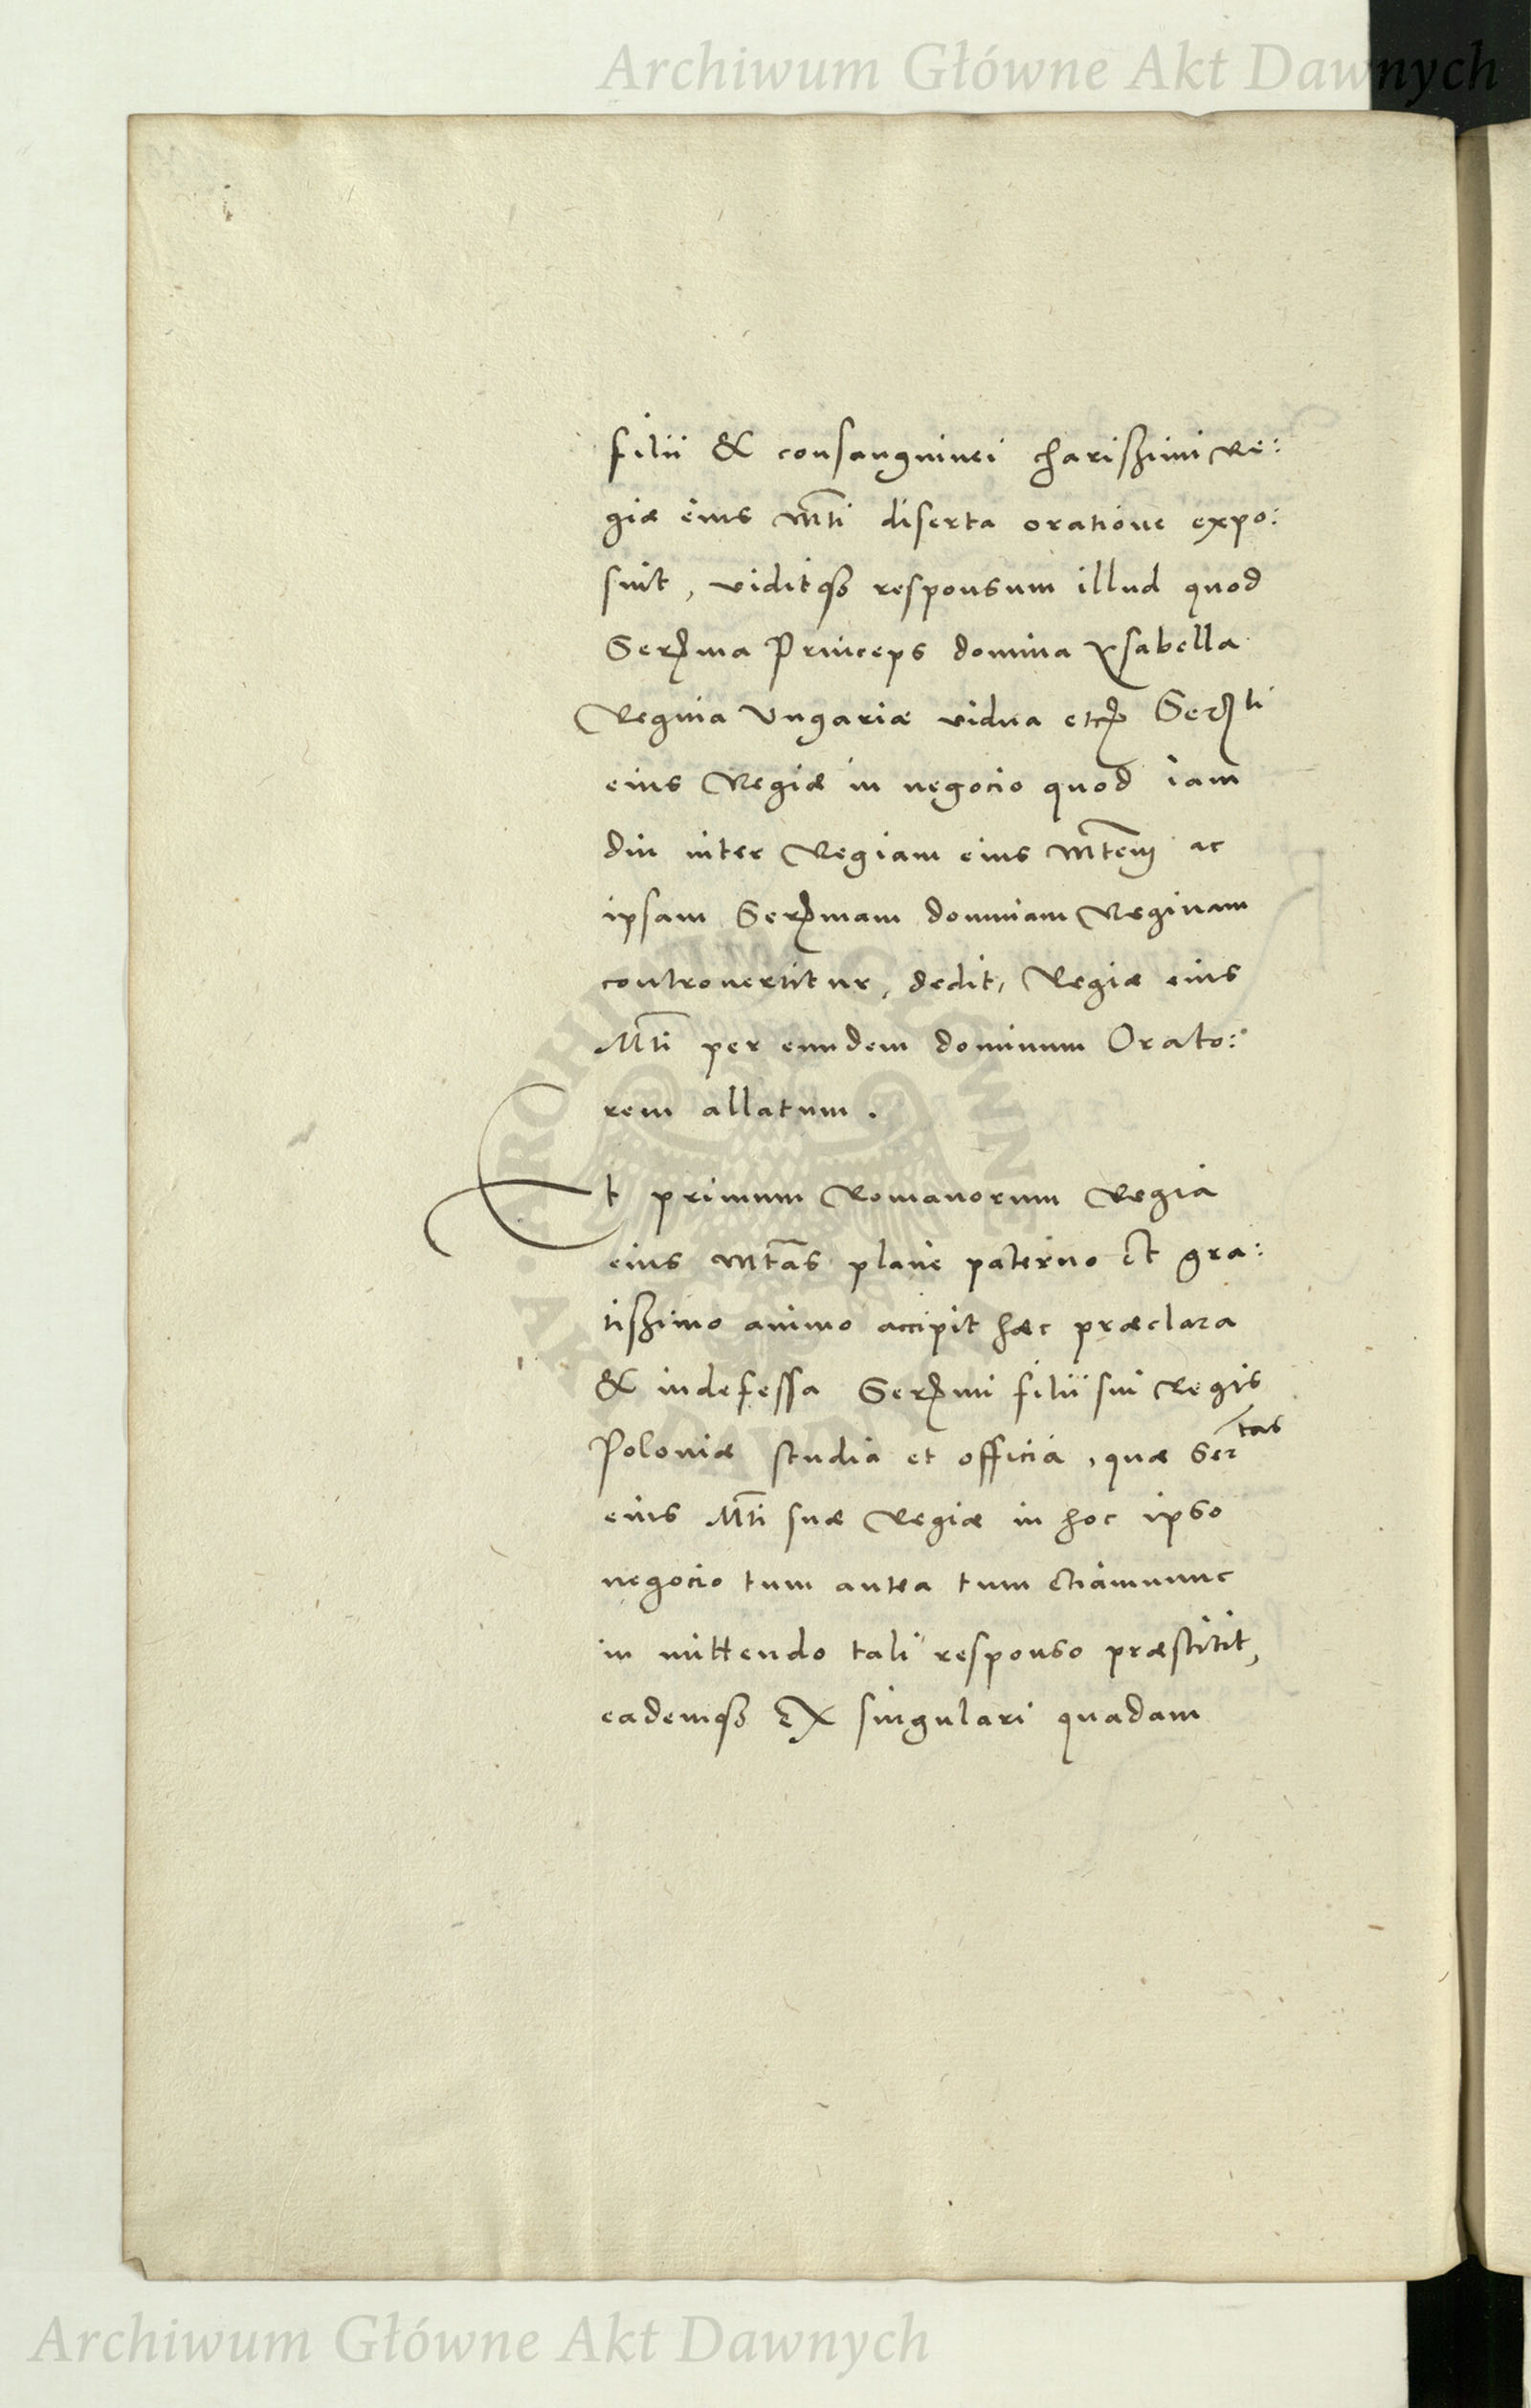 Archiwum Główne Akt Dawnych
filii & consanguinei charissimi Re:
giæ eius Mti diserta oratione expo:
suit, viditq; responsum illud quod
Serma Princeps domina Ysabella
Regina Ungariæ vidua etc. Serti
eius Regiæ in negocio quod iam
diu inter Regiam eius Mtem ac
ipsam Sermam dominam Reginam
controvertitur, dedit, Regiæ eius
Mti per eundem dominum Orato:
rem allatum.
Et primum Romanorum Regia
eius Mtas plane paterno et gra:
tissimo animo accipit hæc præclara
& indefessa Sermi filii sui Regis
Poloniæ studia et officia, quæ Sertas
eius Mti suæ Regiæ in hoc ipso
negocio tum antea tum etiamnunc
in mittendo tali responso præstitit,
eademq; ex singulari quadam
ARCHIWUM GŁÓWNE
AKT DAWNYCH
Archiwum Główne Akt Dawnych